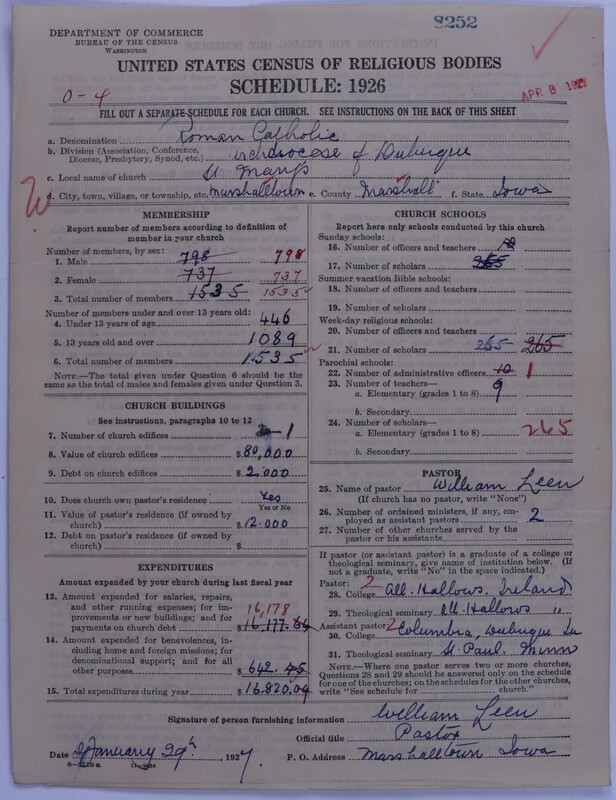 8252
DEPARTMENT OF COMMERCE
BUREAU OF THE CENSUS
WASHINGTON
UNITED STATES CENSUS OF RELIGIOUS BODIES
SCHEDULE: 1926
APR 8 1927
0-4
FILL OUT A SEPARATE SCHEDULE FOR EACH CHURCH. SEE INSTRUCTIONS ON THE BACK OF THIS SHEET
a. Denomination Roman Catholic
b. Division (Association, Conference, Diocese, Presbytery, Synod, etc.) Archdiocese of Dubuque
c. Local name of church St Marys
d. City, town, village, or township, etc. Marshalltown e. County Marshall f. State Iowa
MEMBERSHIP
Report number of members according to definition of
member in your church
Number of members, by sex:
1. Male 798 798
2. Female 737 737
3. Total number of members 1535 1535
Number of members under and over 13 years old:
4. Under 13 years of age 446
5. 13 years old and over 1089
6. Total number of members 1535
NOTE.—The total given under Question 6 should be
same as the total of males and females given under Question 3.
CHURCH BUILDINGS
See instructions, paragraphs 10 to 12
7. Number of church edifices 1
8. Value of church edifices $ 80,000
9. Debt on church edifices $ 2.000
10. Does church own pastor's residence? Yes
Yes or No
11. Value of pastor's residence (if owned by
church) $ 12.000
12. Debt on pastor's residence (if owned by
church) $
EXPENDITURES
Amount expended by your church during last fiscal year
13. Amount expended for salaries, repairs,
and other running expenses; for im-
provements or new buildings; and for
payments on church debt 16,178
$ 16,177.64
14. Amount expended for benevolences,
including home and foreign missions; for
denominational support; and for all
other purposes $ 642.45
15. Total expenditures during year $ 16.820.09
CHURCH SCHOOLS
Report here only schools conducted by this church
Sunday schools:
16. Number of officers and teachers
17. Number of scholars 265
Summer vacation Bible schools:
18. Number of officers and teachers
19. Number of scholars
Week-day religious schools:
20. Number of officers and teachers
21. Number of scholars 265 265
Parochial schools:
22. Number of administrative officers 10 1
23. Number of teachers—
a. Elementary (grades 1 to 8) 9
b. Secondary
24. Number of scholars—
a. Elementary (grades 1 to 8) 265
b. Secondary
PASTOR
25. Name of pastor William Leen
(If church has no pastor, write "None")
26. Number of ordained ministers, if any, em-
ployed as assistant pastors 2
27. Number of other churches served by the
pastor or his assistants
If pastor (or assistant pastor) is a graduate of a college or
theological seminary, give name of institution below. (If
not a graduate, write "No" in the space indicated.)
Pastor: 2
28. College All Hallows, Ireland
29. Theological seminary All Hallows "
Assistant pastor: 2
30. College Columbia, Dubuque Ia
31. Theological seminary St. Paul. Minn
NOTE.—Where one pastor serves two or more churches,
Questions 28 and 29 should be answered only on the schedule
for one of the churches; on the schedules for the other churches,
write "See schedule for church."
Signature of person furnishing information William Leen
Official title Pastor
Date January 29th, 1927. P. O. Address Marshalltown Iowa